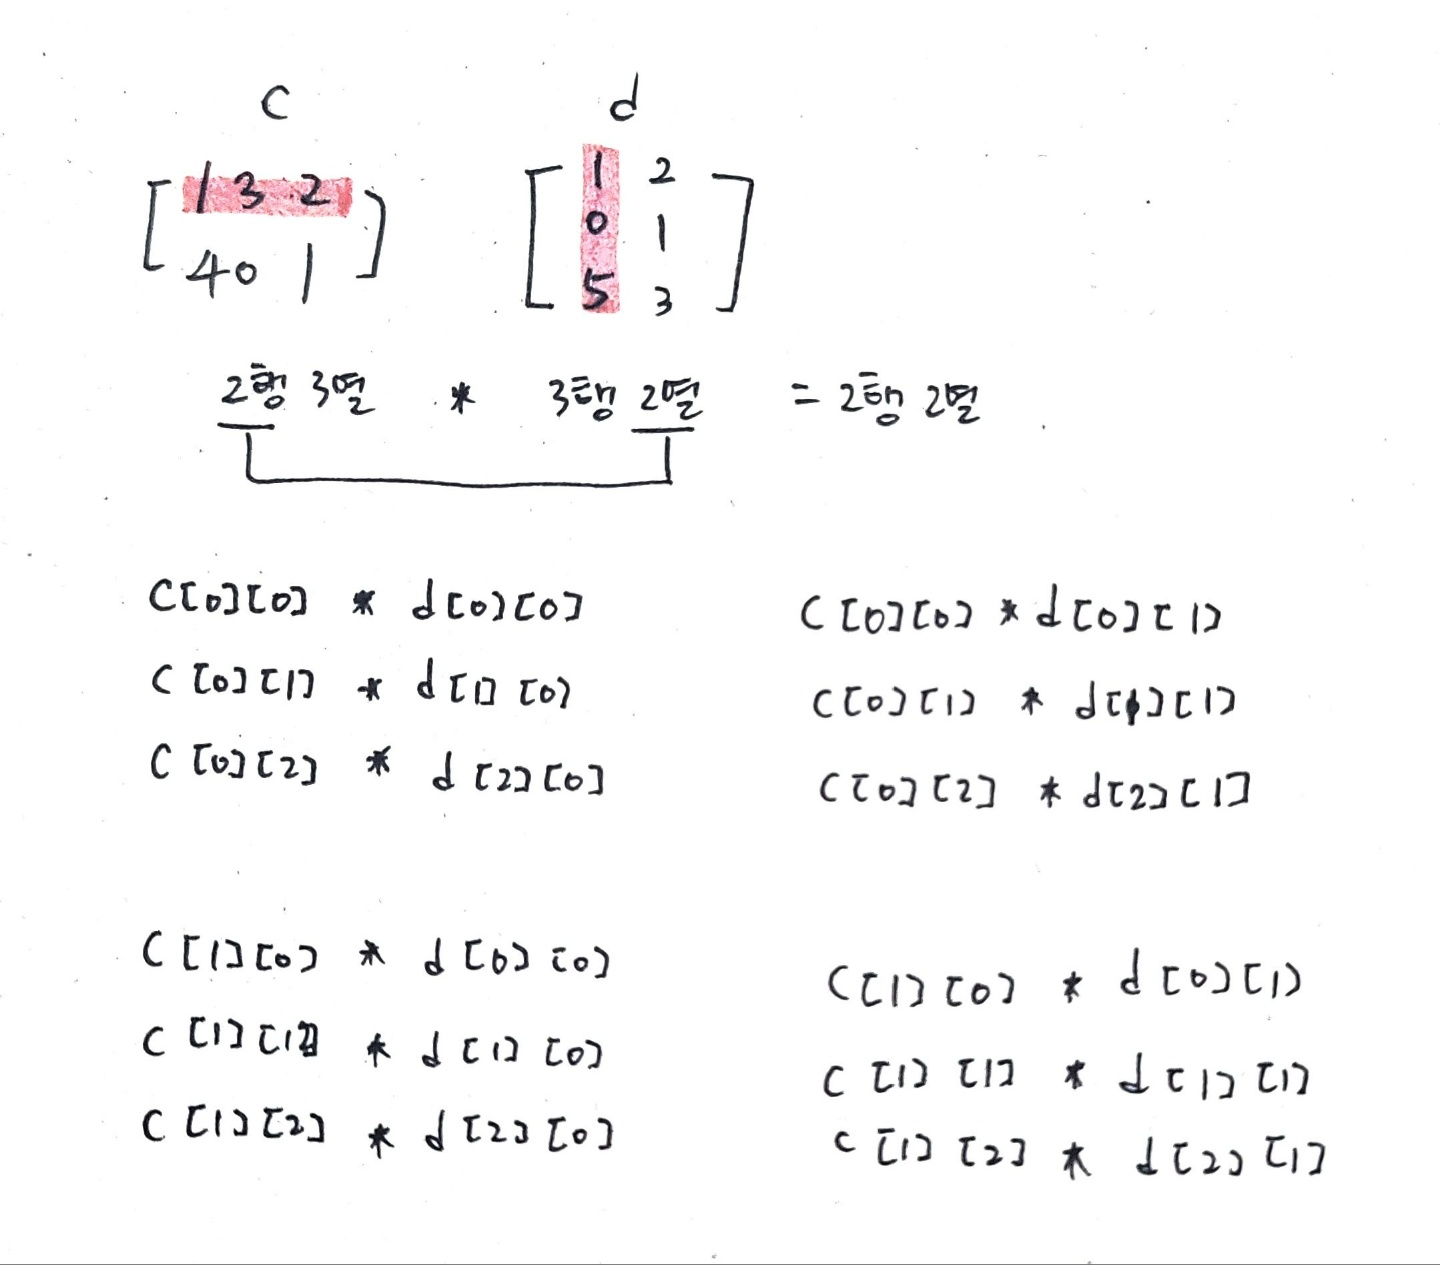 c d
[ 1 3 2 ] [ 1 2 ]
0 1
4 0 1 5 3
2행 3열 * 3행 2열 = 2행 2열
C[0][0] * d[0][0] C[0][0] * d[0][1]
C[0][1] * d[1][0] C[0][1] * d[1][1]
C[0][2] * d[2][0] C[0][2] * d[2][1]
C[1][0] * d[0][0] C[1][0] * d[0][1]
C[1][1] * d[1][0] C[1][1] * d[1][1]
C[1][2] * d[2][0] C[1][2] * d[2][1]